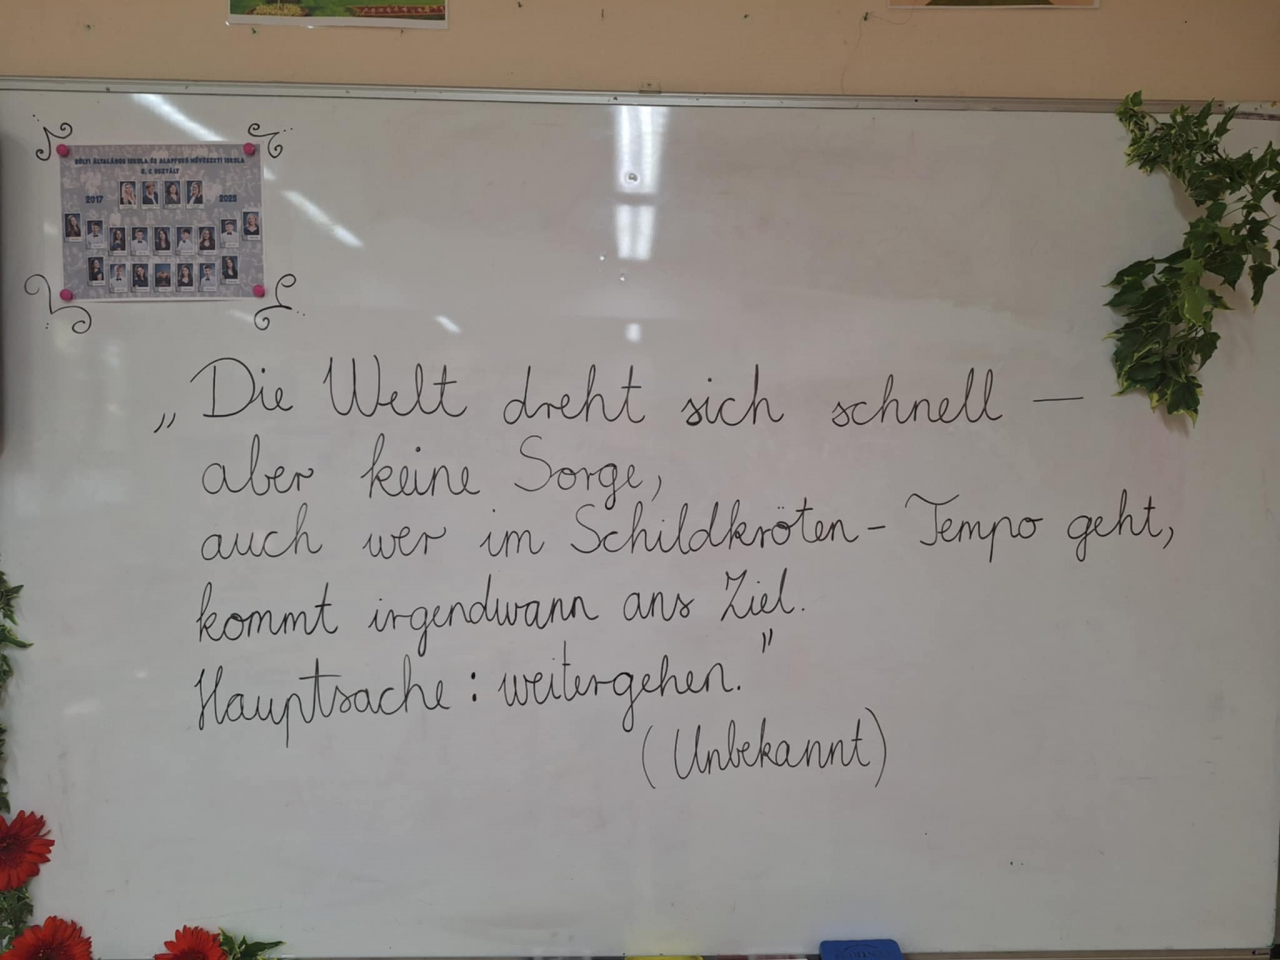 BÓLYI ÁLTALÁNOS ISKOLA ÉS ALAPFOKÚ MŰVÉSZETI ISKOLA
8. C OSZTÁLY
2017 2025
„Die Welt dreht sich schnell —
aber keine Sorge,
auch wer im Schildkröten-Tempo geht,
kommt irgendwann ans Ziel.
Hauptsache: weitergehen."
(Unbekannt)